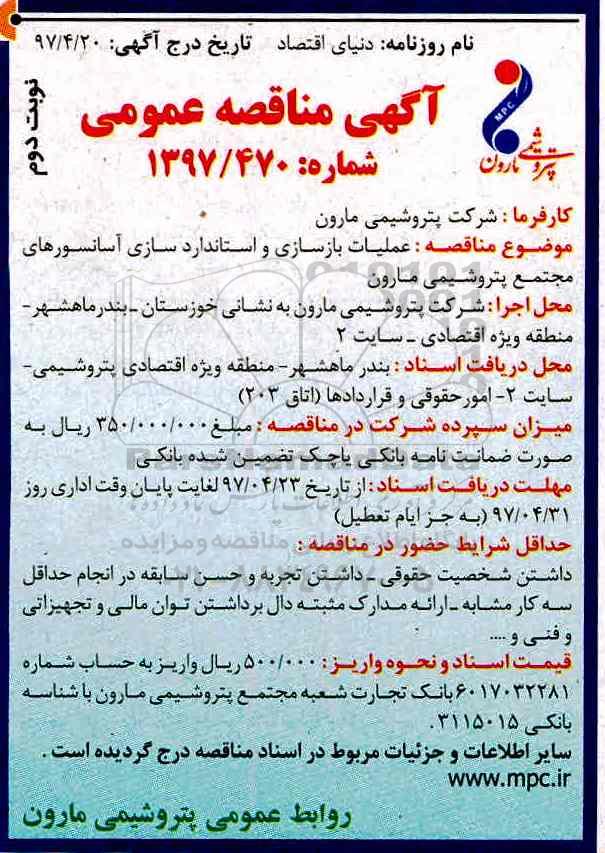 نام روزنامه: دنیای اقتصاد تاریخ درج آگهی: ۹۷/۴/۲۰
نوبت دوم
MPC
پتروشیمی مارون
آگهی مناقصه عمومی
شماره: ۱۳۹۷/۴۷۰
کارفرما : شرکت پتروشیمی مارون
موضوع مناقصه : عملیات بازسازی و استاندارد سازی آسانسورهای
مجتمع پتروشیمی مارون
محل اجرا : شرکت پتروشیمی مارون به نشانی خوزستان ـ بندرماهشهر-
منطقه ویژه اقتصادی ـ سایت ۲
محل دریافت اسناد : بندر ماهشهر- منطقه ویژه اقتصادی پتروشیمی-
سایت ۲- امورحقوقی و قراردادها (اتاق ۲۰۳)
میزان سپرده شرکت در مناقصه : مبلغ ۳۵۰/۰۰۰/۰۰۰ ریال به
صورت ضمانت نامه بانکی یاچک تضمین شده بانکی
مهلت دریافت اسناد : از تاریخ ۹۷/۰۴/۲۳ لغایت پایان وقت اداری روز
۹۷/۰۴/۳۱ (به جز ایام تعطیل)
حداقل شرایط حضور در مناقصه :
داشتن شخصیت حقوقی ـ داشتن تجربه و حسن سابقه در انجام حداقل
سه کار مشابه ـ ارائه مدارک مثبته دال برداشتن توان مالی و تجهیزاتی
و فنی و ....
قیمت اسناد و نحوه واریز : ۵۰۰/۰۰۰ ریال واریز به حساب شماره
۶۰۱۷۰۳۲۲۸۱ بانک تجارت شعبه مجتمع پتروشیمی مارون با شناسه
بانکی ۳۱۱۵۰۱۵ .
سایر اطلاعات و جزئیات مربوط در اسناد مناقصه درج گردیده است .
www.mpc.ir
روابط عمومی پتروشیمی مارون